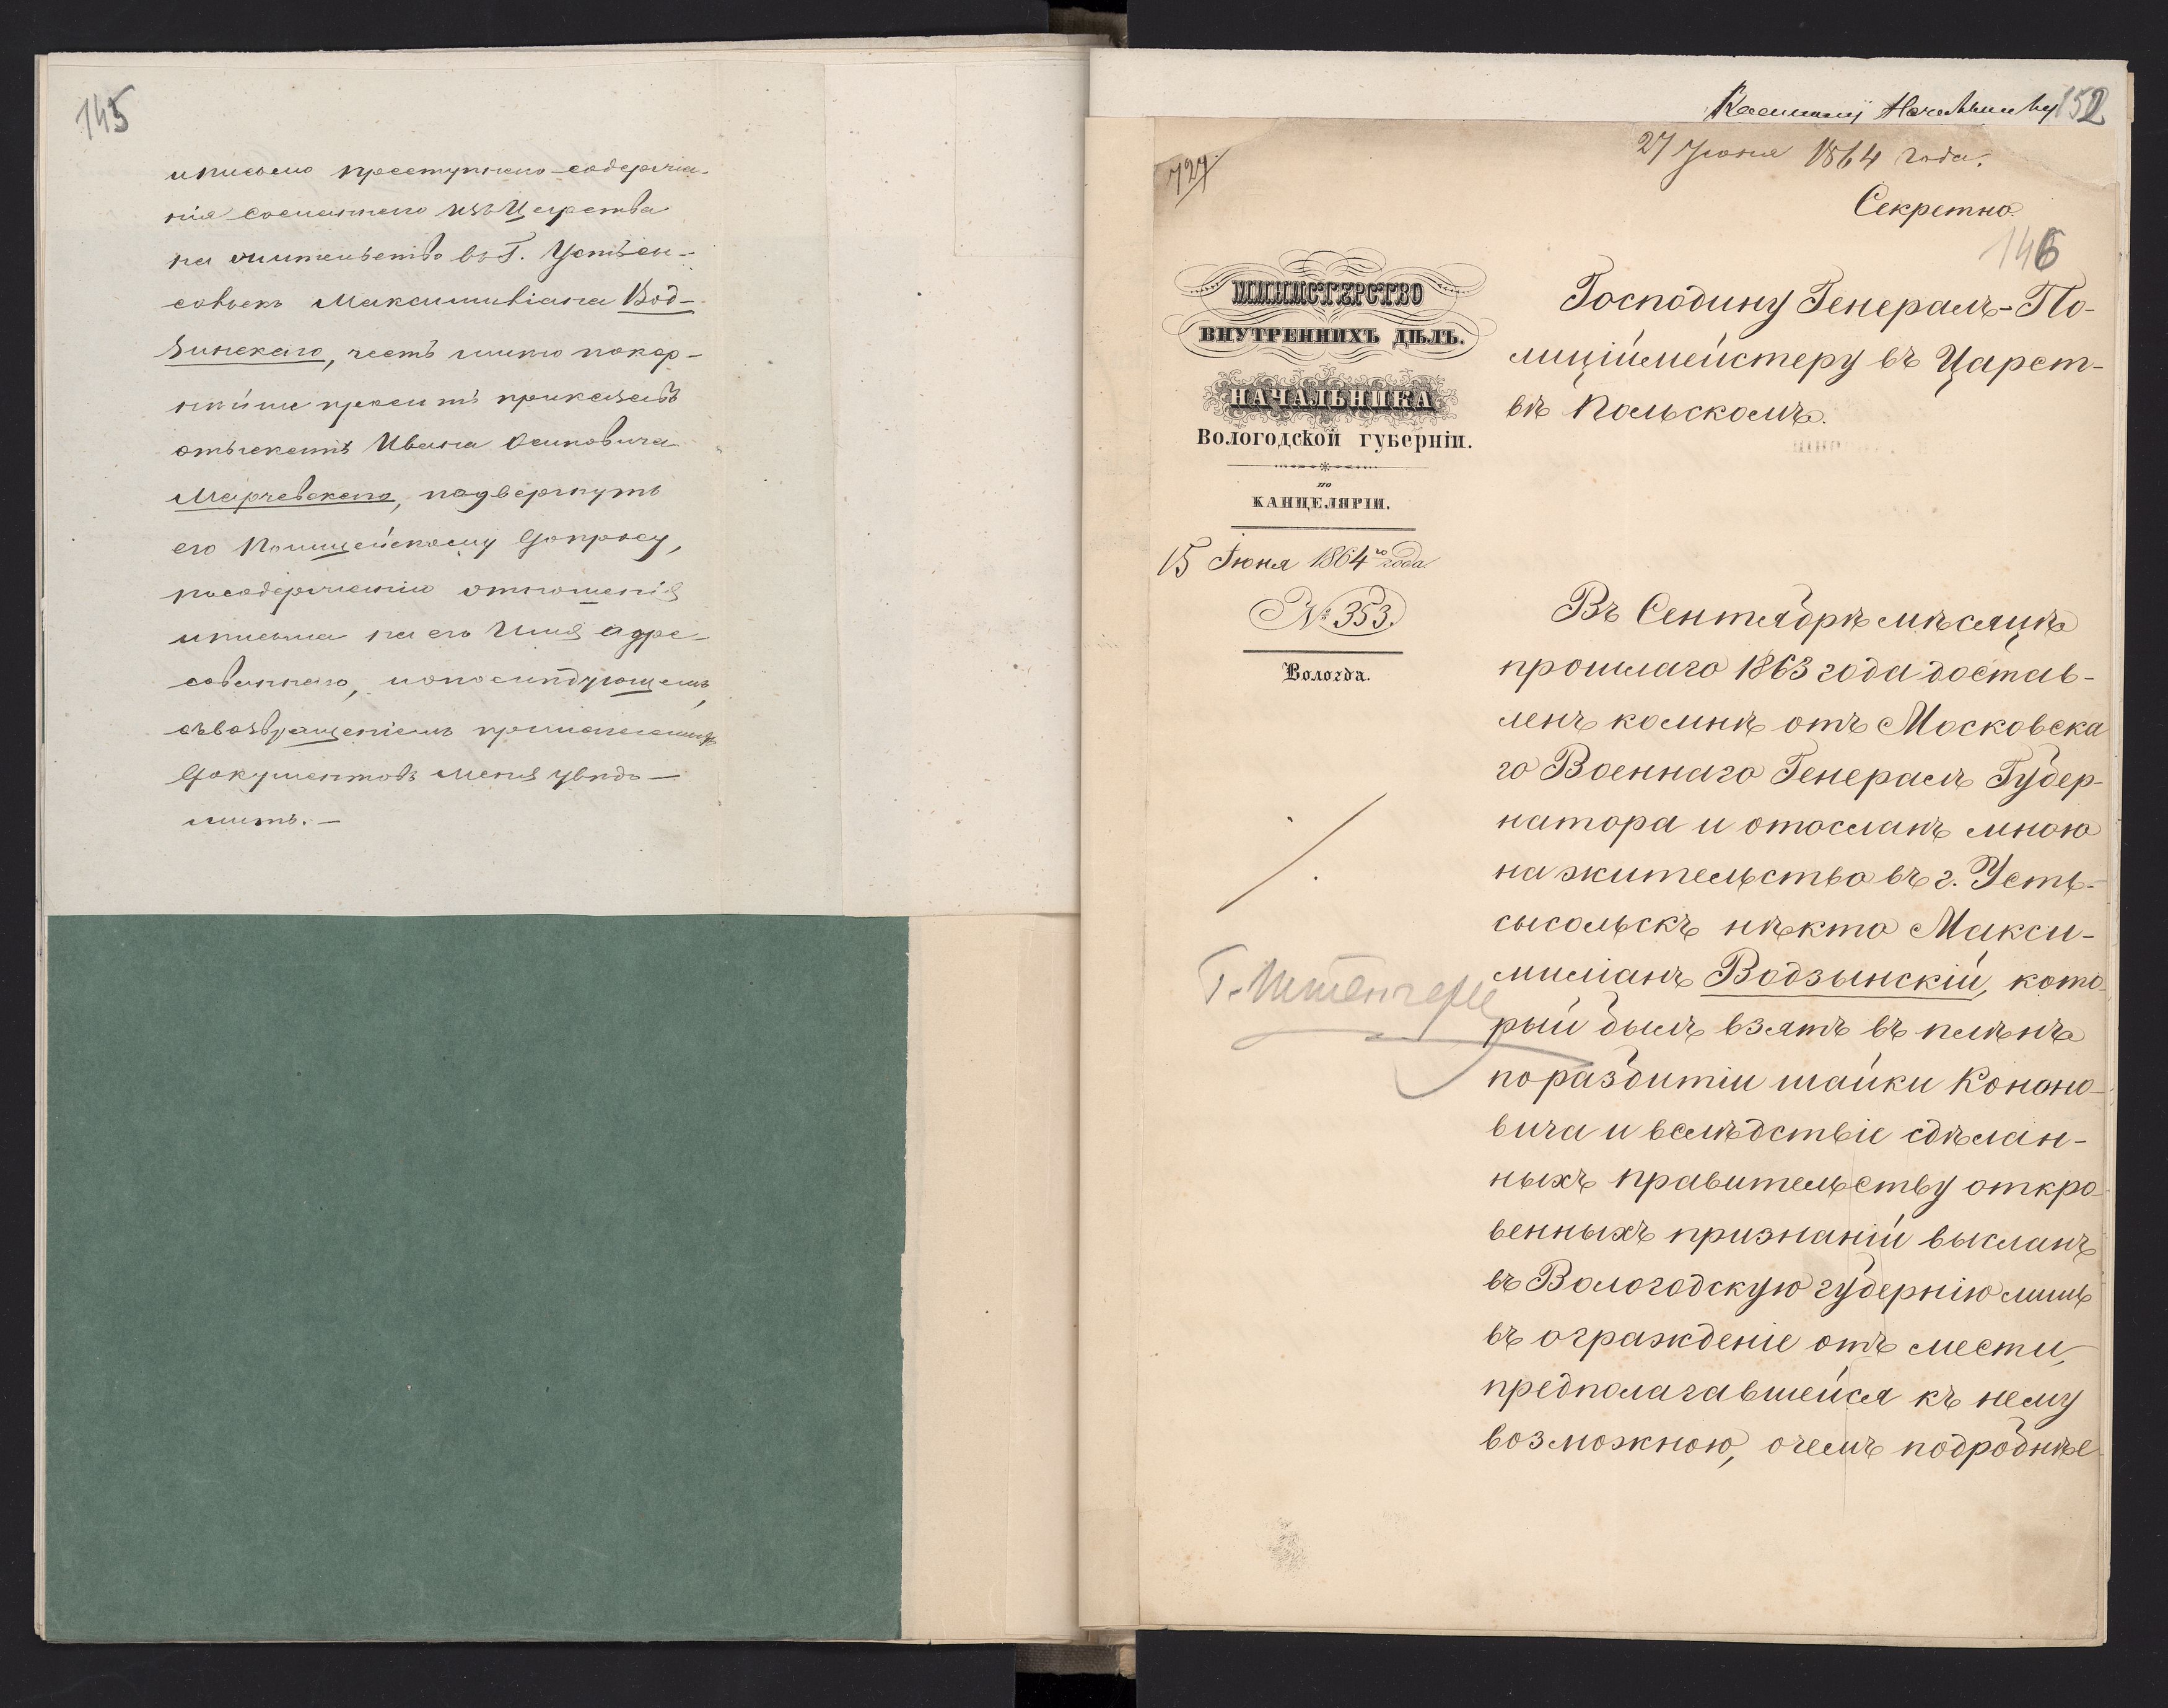 145
и письмо преступнаго содержа-
нія сосланнаго изъ Царства
на жительство въ Г. Устьсы-
сольскъ Максимиліана Вод-
зинскаго, честь имѣю покор-
нѣйше просить приказать
отыскать Ивана Осиповича
Марчевскаго, подвергнуть
его Полицейскому допросу,
по содержанію отношенія
и письма на его Имя адре-
сованнаго, и о послѣдующемъ,
съ возвращеніемъ приложенныхъ
документовъ меня увѣдо-
мить. —
152
27 Іюня 1864 года.
727
Секретно.
146
МИНИСТЕРСТВО
ВНУТРЕННИХЪ ДѢЛЪ.
НАЧАЛЬНИКА
Вологодской губерніи.
по
КАНЦЕЛЯРІИ.
15 Іюня 1864го года
№ 353.
Вологда.
Господину Генералъ-По-
лиціймейстеру въ Царст-
вѣ Польскомъ.
Въ Сентябрѣ мѣсяцѣ
прошлаго 1863 года достав-
ленъ ко мнѣ отъ Московска
го Военнаго Генералъ Губер-
натора и отосланъ мною
на жительство въ г. Усть-
сысольскъ нѣкто Макси-
миліанъ Водзынскій, кото-
рый былъ взятъ въ плѣнъ
по разбитіи шайки Конано-
вича и вслѣдствіе сдѣлан-
ныхъ правительству откро-
венныхъ признаній высланъ
въ Вологодскую губернію лишь
въ огражденіе отъ мести,
предполагавшейся къ нему
возможною, о чемъ подробнѣе